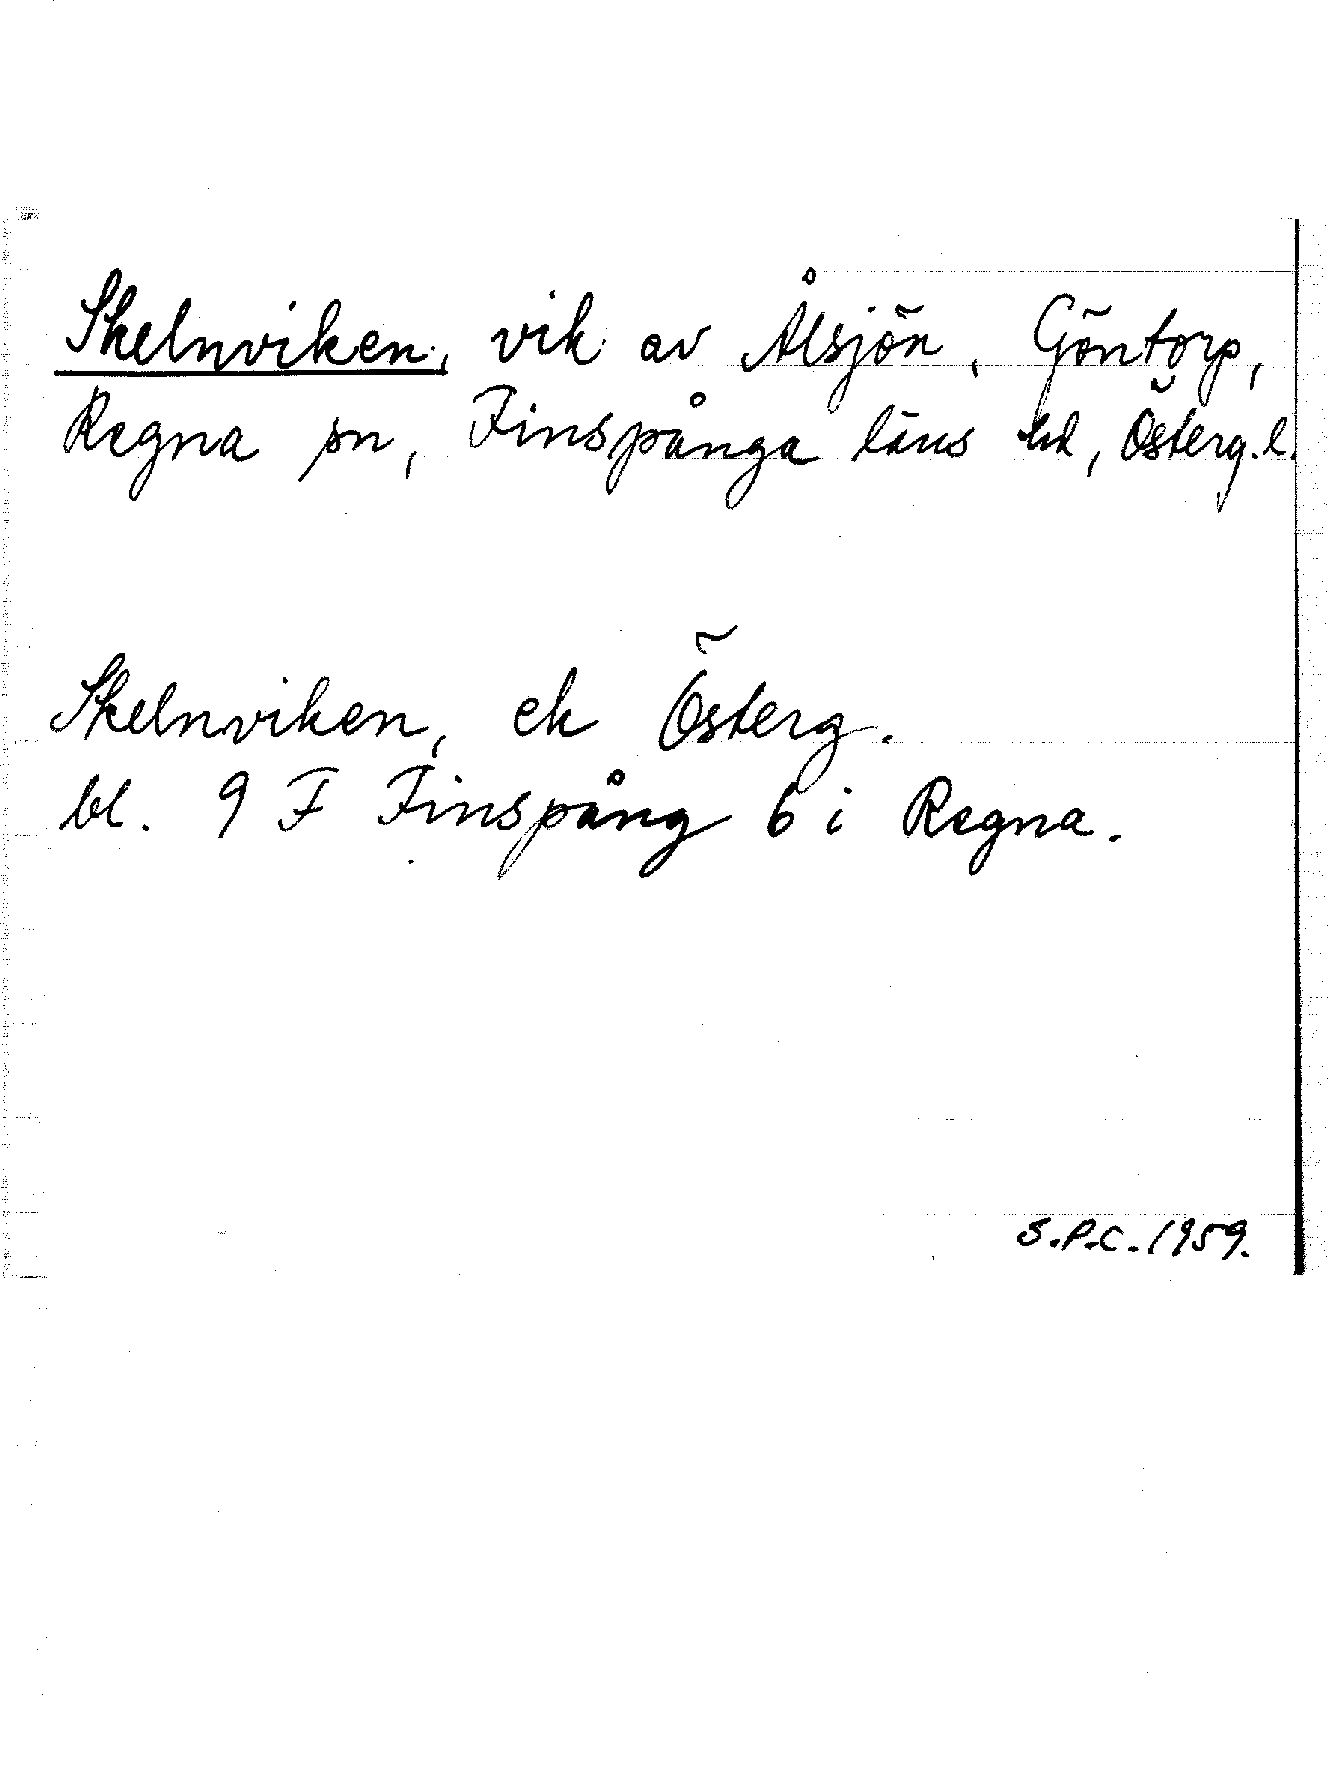 Skelnviken, vik av Ålsjön, Göntorp,
Regna sn, Finspånga läns hd, Österg. l.
Skelnviken, ek Österg.
bl. 9 F Finspång 6 i Regna.
S.P.C. 1959.